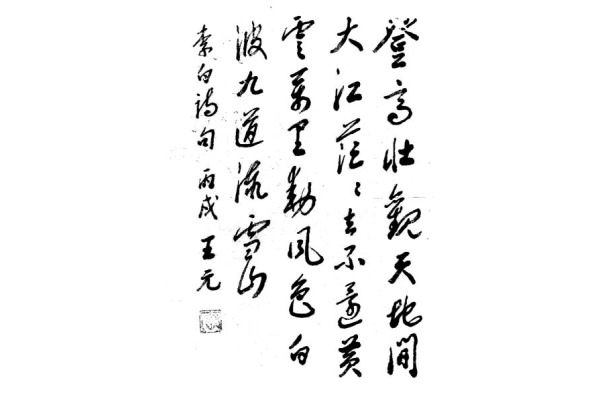 登高壮觀天地間
大江茫々去不還黄
雲萬里動風色白
波九道流雪山
李白詩句 丙戌 王元